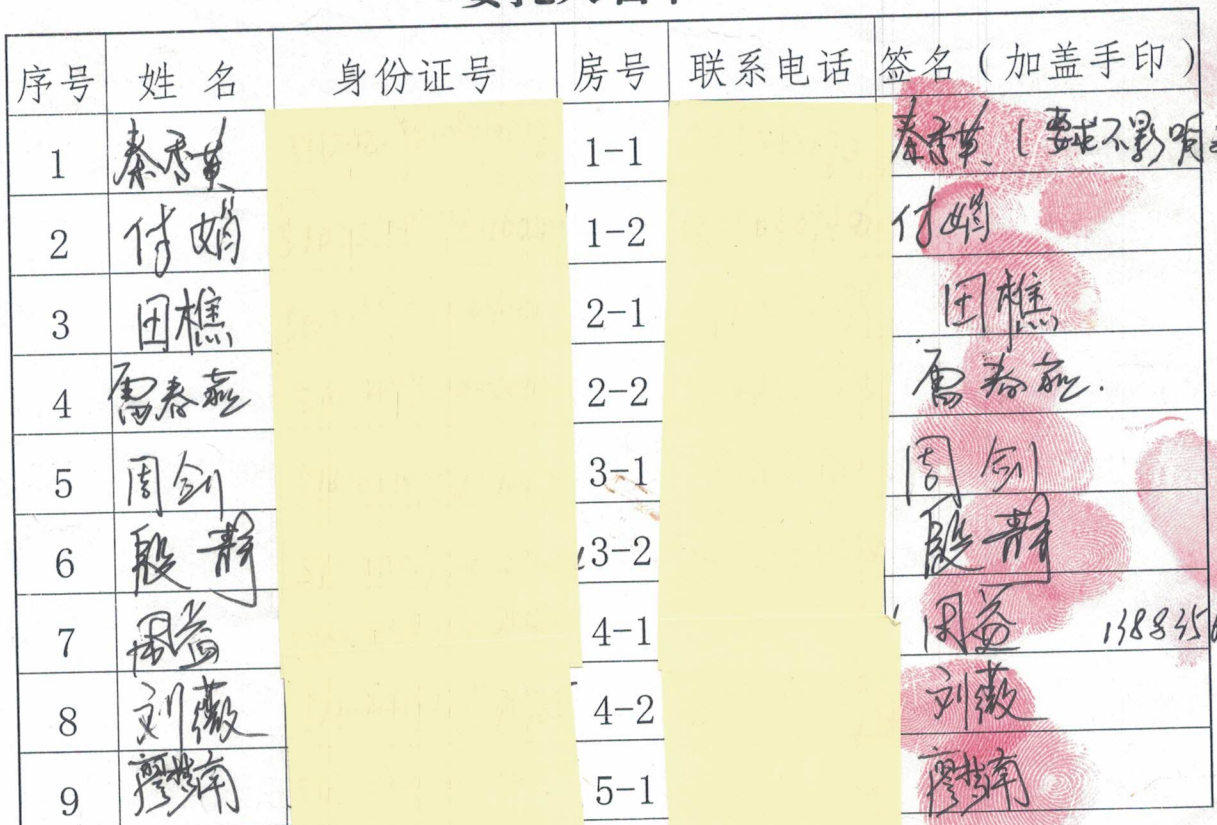 序号 姓名 身份证号 房号 联系电话 签名(加盖手印)
1 秦香英 1-1 秦香英(要求不影响
2 付娟 1-2 付娟
3 田樵 2-1 田樵
4 雷春燕 2-2 雷春燕.
5 周剑 3-1 周剑
6 殷静 3-2 殷静
7 周益 4-1 周益 138835
8 刘薇 4-2 刘薇
9 廖梦南 5-1 廖梦南